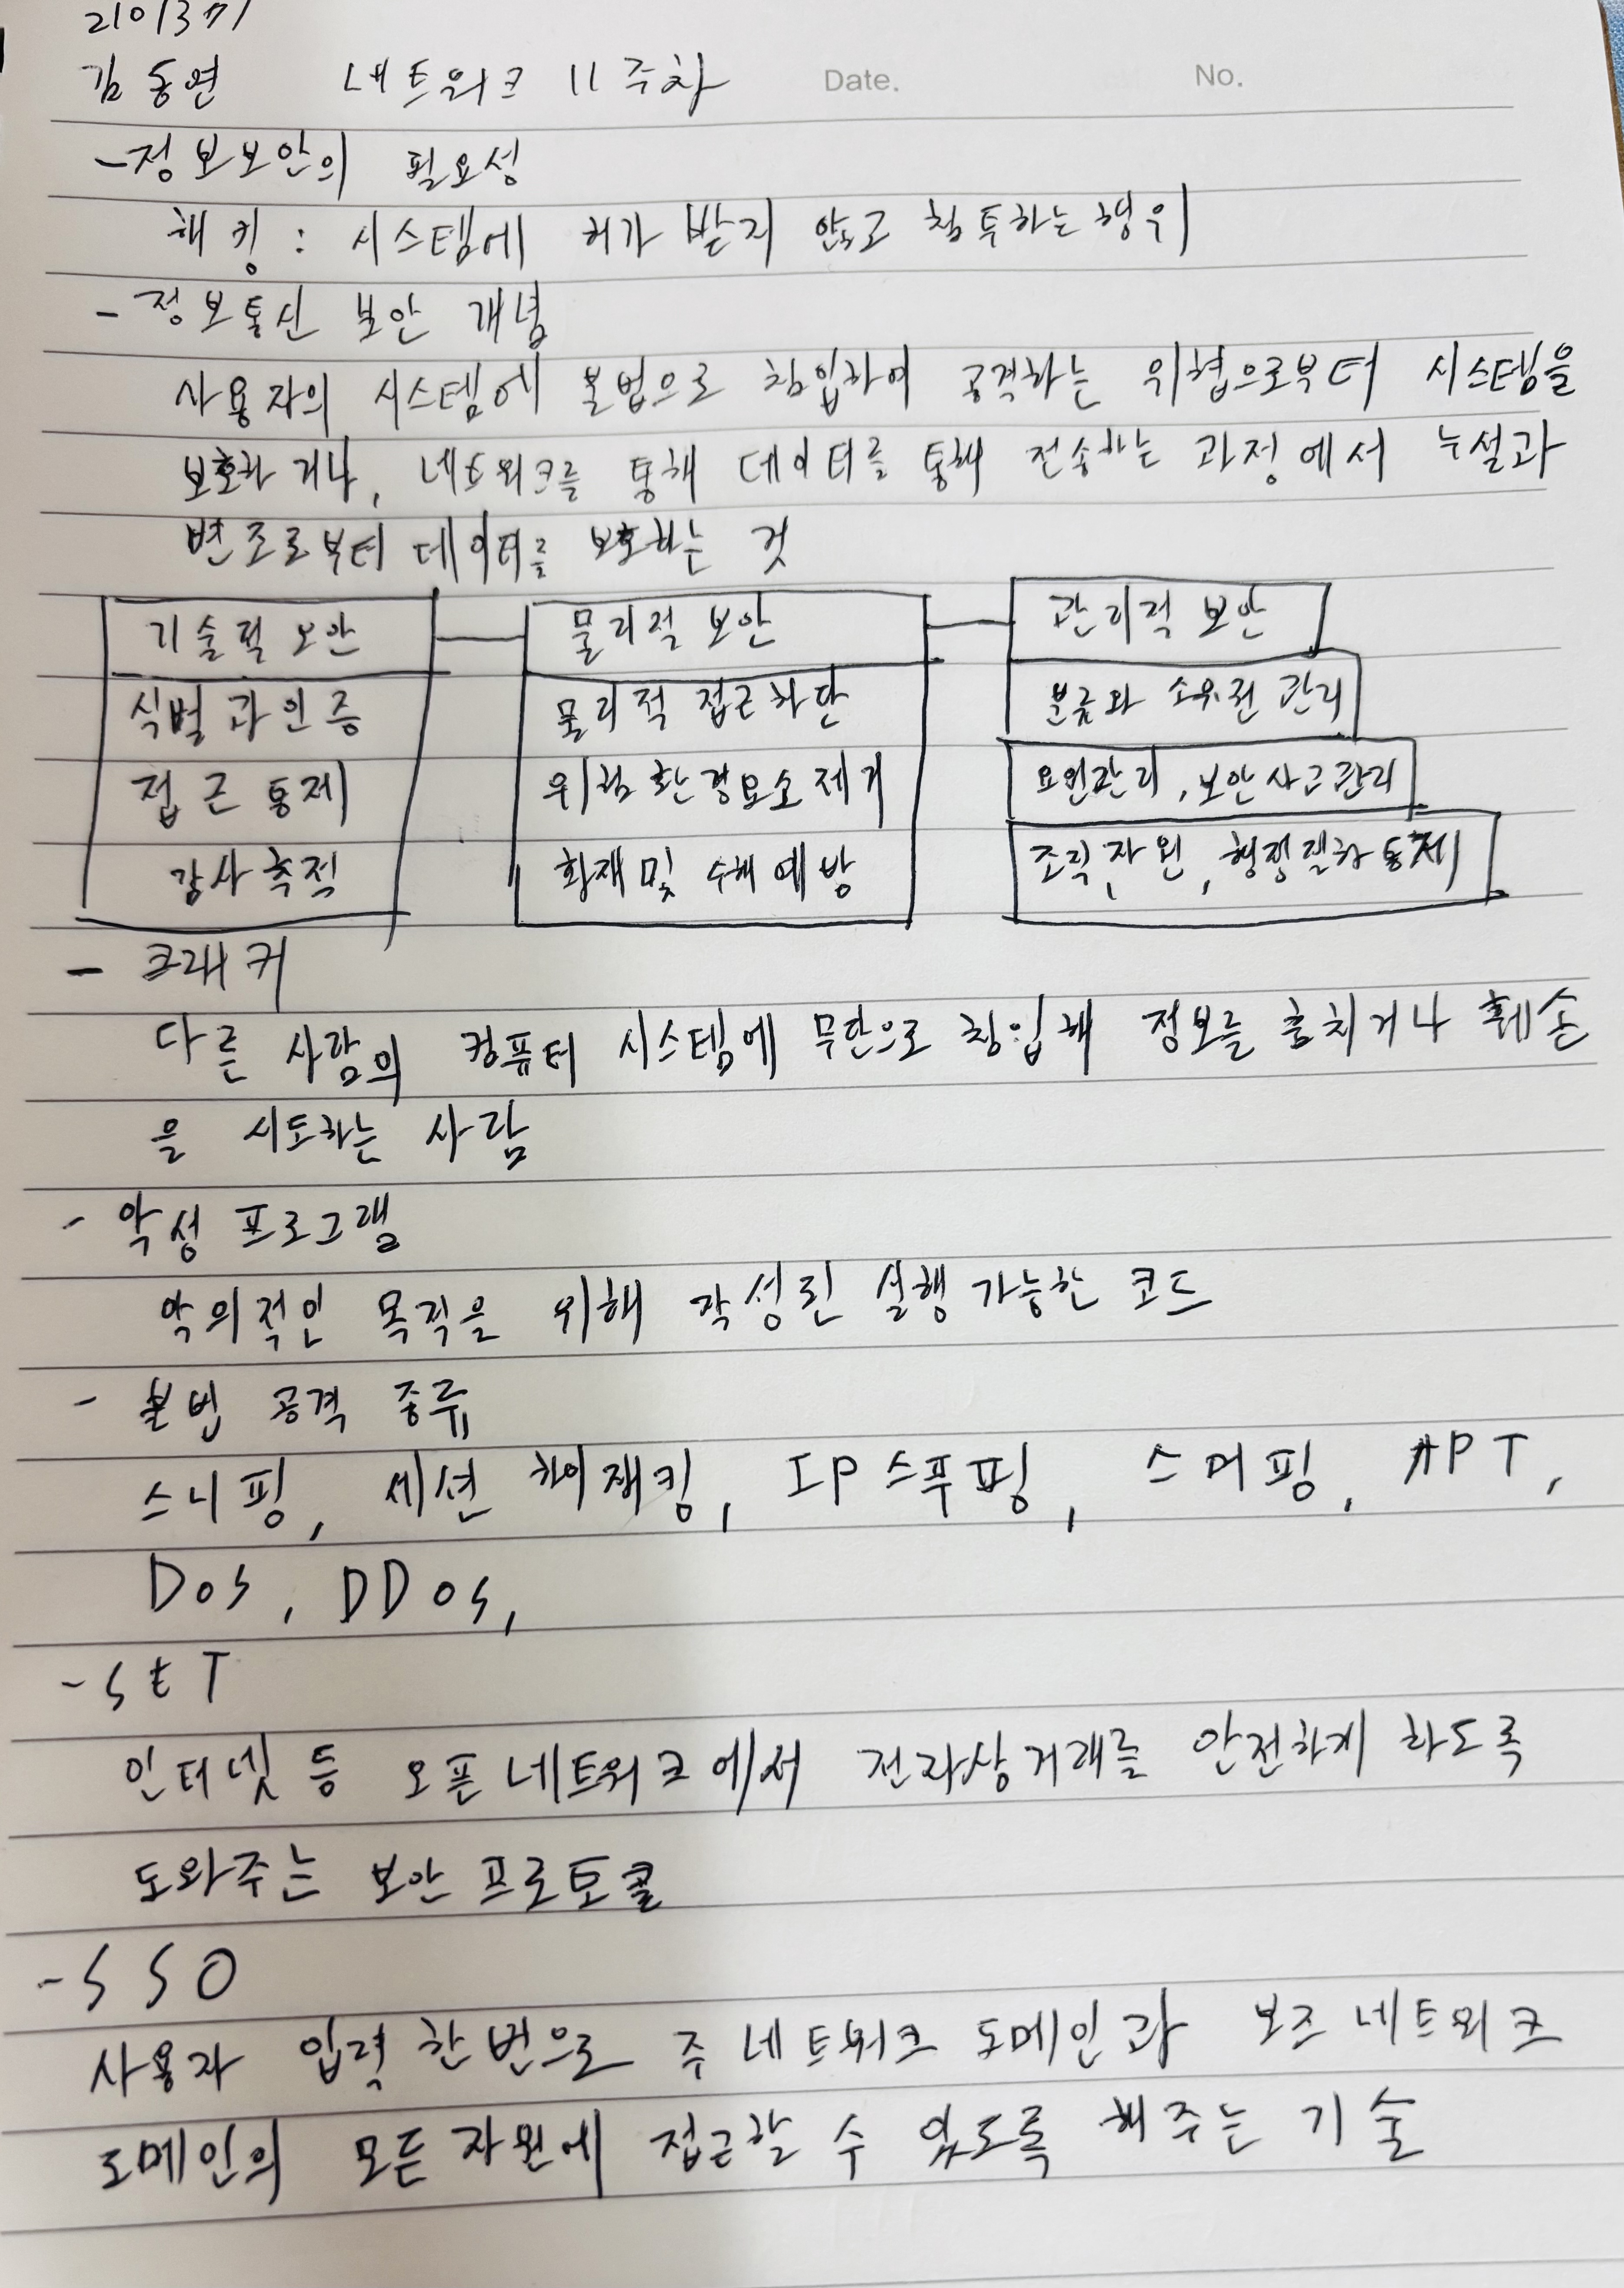 2101371
김동연 네트워크 11주차 Date. No.
- 정보보안의 필요성
해킹 : 시스템에 허가 받지 않고 침투하는 행위
- 정보통신 보안 개념
사용자의 시스템에 불법으로 침입하여 공격하는 위협으로부터 시스템을
보호하거나, 네트워크를 통해 데이터를 통해 전송하는 과정에서 누설과
변조로부터 데이터를 보호하는 것
기술적 보안 물리적 보안 관리적 보안
식별과 인증 물리적 접근차단 분류와 소유권 관리
접근 통제 위험환경요소 제거 요원관리, 보안사고관리
감사추적 화재 및 수해예방 조직,자원, 행정절차 통제
- 크래커
다른 사람의 컴퓨터 시스템에 무단으로 침입해 정보를 훔치거나 훼손
을 시도하는 사람
- 악성 프로그램
악의적인 목적을 위해 작성된 실행가능한 코드
- 불법 공격 종류
스니핑, 세션 하이재킹, IP스푸핑, 스머핑, APT,
Dos, DDos,
- SET
인터넷 등 오픈네트워크에서 전자상거래를 안전하게 하도록
도와주는 보안 프로토콜
- SSO
사용자 입력 한번으로 주 네트워크 도메인과 보조 네트워크
도메인의 모든 자원에 접근할 수 있도록 해주는 기술